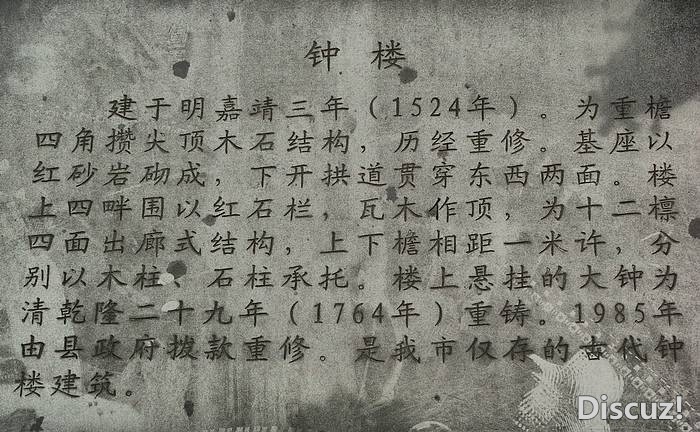 钟 楼
建于明嘉靖三年（1524年）。为重檐
四角攒尖顶木石结构，历经重修。基座以
红砂岩砌成，下开拱道贯穿东西两面。楼
上四畔围以红石栏，瓦木作顶，为十二檩
四面出廊式结构，上下檐相距一米许，分
别以木柱、石柱承托。楼上悬挂的大钟为
清乾隆二十九年（1764年）重铸。1985年
由县政府拨款重修。是我市仅存的古代钟
楼建筑。
Discuz!